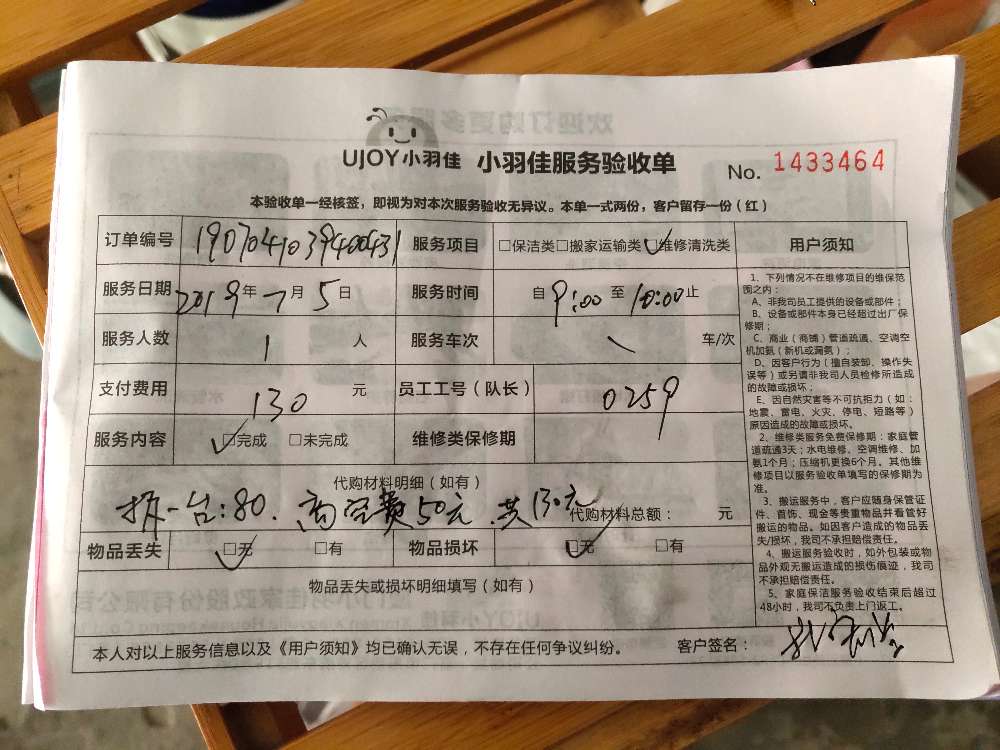 UJOY小羽佳 小羽佳服务验收单 No. 1433464
本验收单一经核签，即视为对本次服务验收无异议。本单一式两份，客户留存一份（红）
订单编号 1907041039400431 服务项目 □保洁类 □搬家运输类 ☑维修清洗类
服务日期 2019年7月5日 服务时间 自9:00至10:00止
服务人数 1 人 服务车次 \ 车/次
支付费用 130 元 员工工号（队长） 0259
服务内容 ☑完成 □未完成 维修类保修期
代购材料明细（如有）
拆一台:80. 高空费50元.共130元
代购材料总额： 元
物品丢失 ☑无 □有 物品损坏 ☑无 □有
物品丢失或损坏明细填写（如有）
本人对以上服务信息以及《用户须知》均已确认无误，不存在任何争议纠纷。 客户签名：
用户须知
1、下列情况不在维修项目的维保范
围之内：
A、非我司员工提供的设备或部件；
B、设备或部件本身已经超过出厂保
修期；
C、商业（商铺）管道疏通、空调空
机加氨（新机或漏氨）；
D、因客户行为（擅自装卸、操作失
误等）或另请非我司人员检修所造成
的故障或损坏；
E、因自然灾害等不可抗拒力（如：
地震、雷电、火灾、停电、短路等）
原因造成的故障或损坏。
2、维修类服务免费保修期：家庭管
道疏通3天；水电维修、空调维修、加
氨1个月；压缩机更换6个月。其他维
修项目以服务验收单填写的保修期为
准。
3、搬运服务中，客户应随身保管证
件、首饰、现金等贵重物品并看管好
搬运的物品。如因客户造成的物品丢
失/损坏，我司不承担赔偿责任。
4、搬运服务验收时，如外包装或物
品外观无搬运造成的损伤痕迹，我司
不承担赔偿责任。
5、家庭保洁服务验收结束后超过
48小时，我司不负责上门返工。